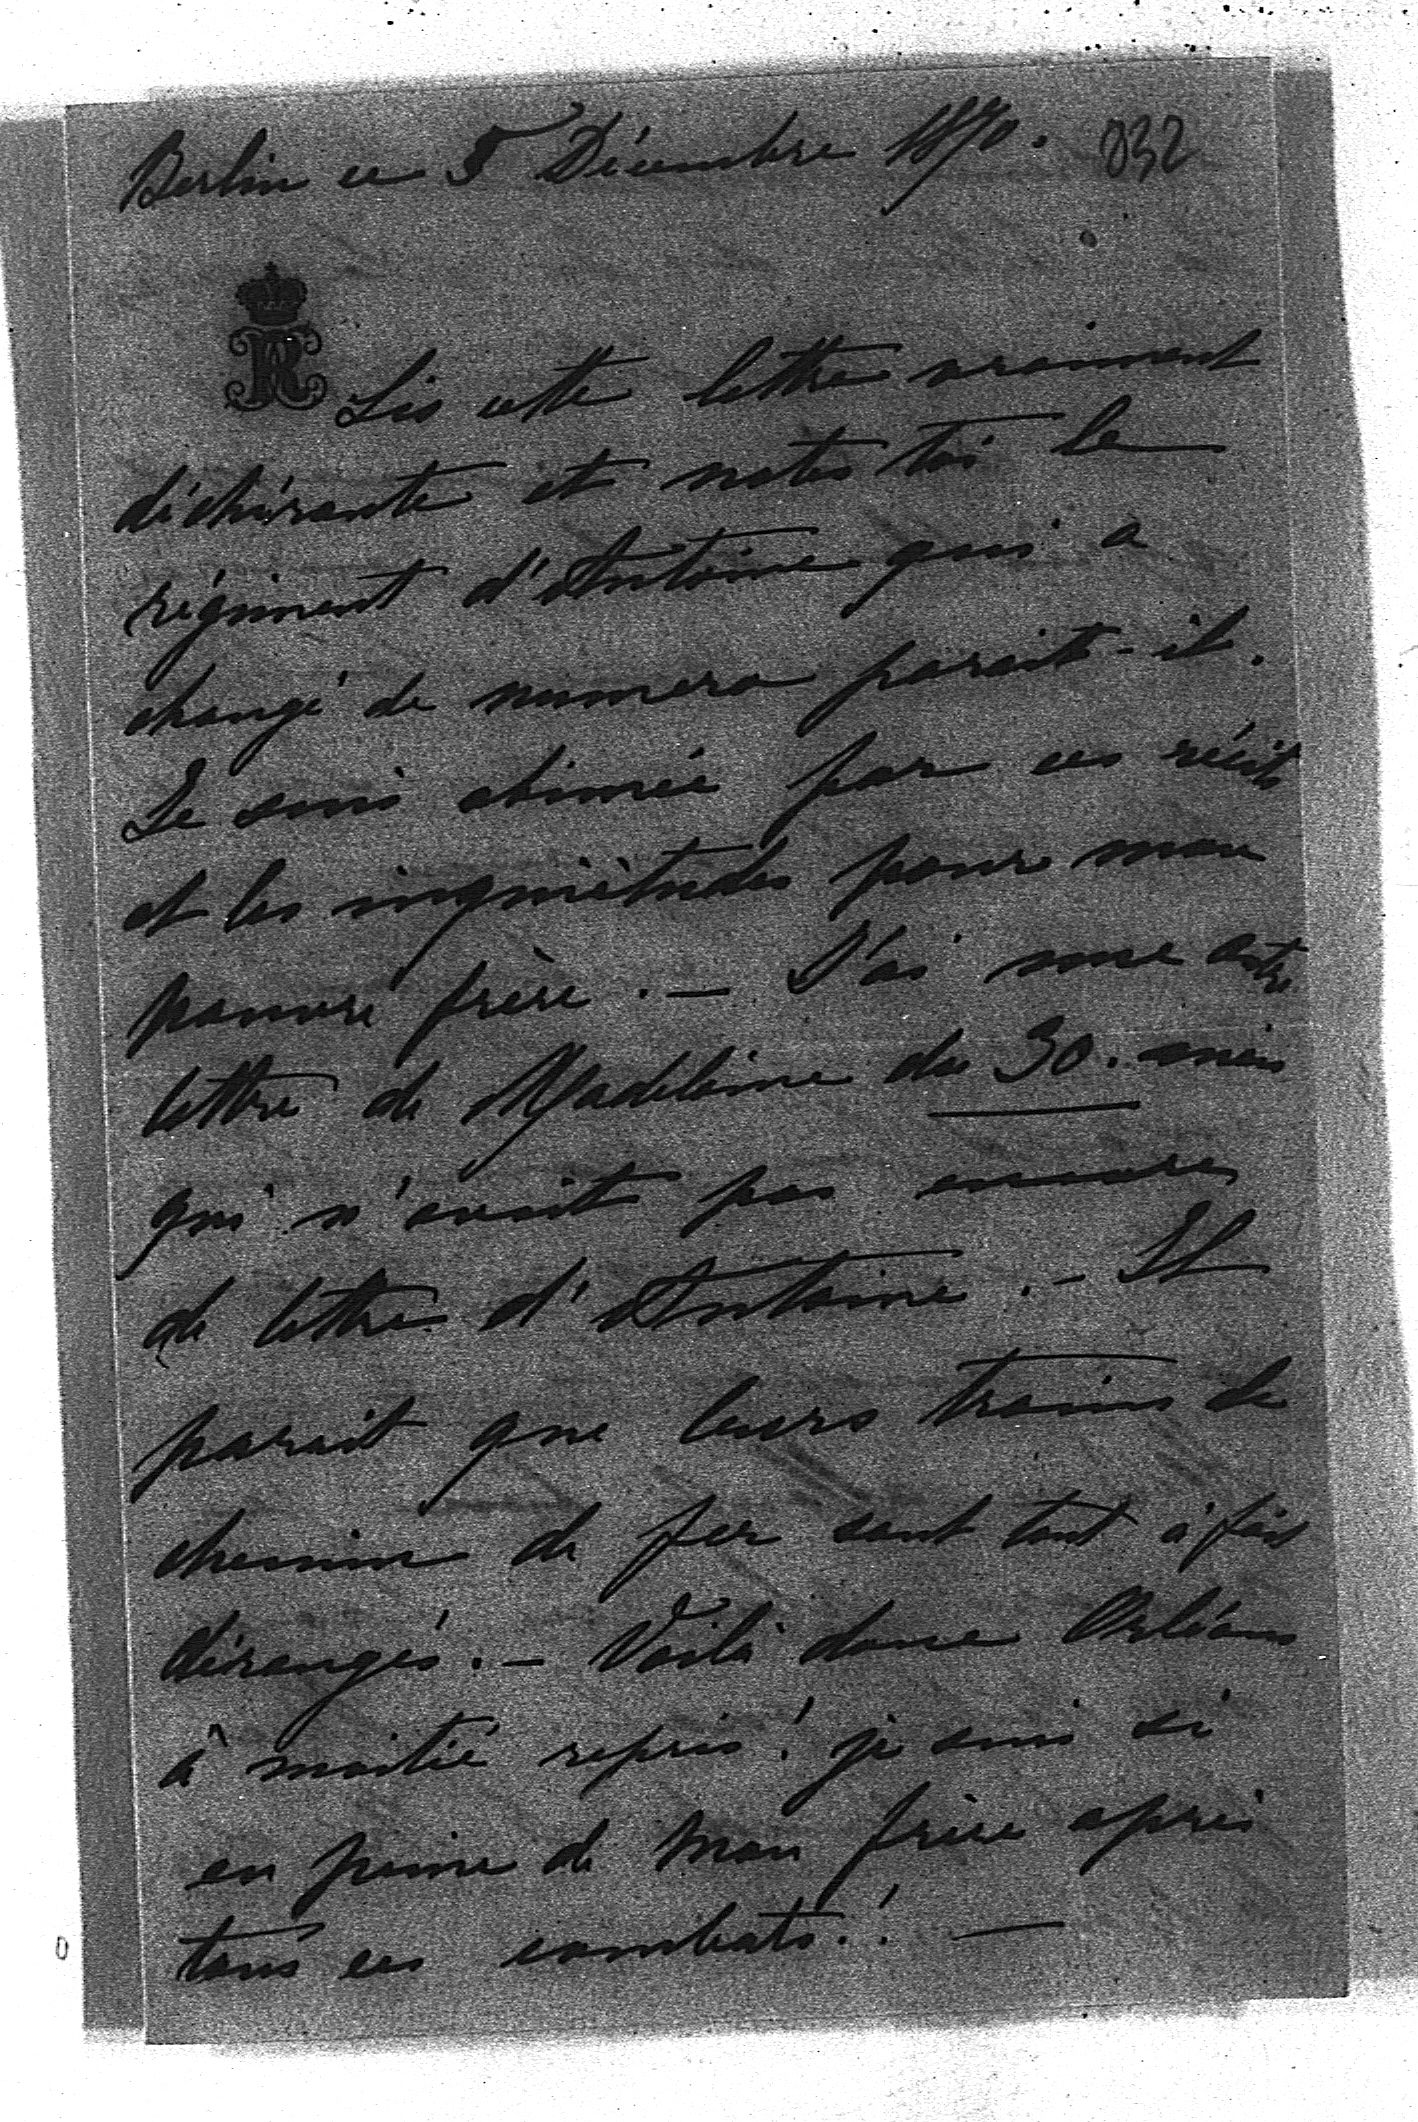 Berlin ce 5 Décembre 1870.
032
Lis cette lettre vraiment
déchirante et notes toi le
régiment d'Antoine qui a
changé de numero parait-il.
Je suis abimée par ces récits
et les inquiètudes pour mon
pauvre frère. — J'ai une autre
lettre de Madeleine du 30. mais
qui n'avait pas encore
de lettre d'Antoine. — Il
parait que leurs trains de
chemin de fer sont tout à fait
dérangés. — Voilà donc Orléans
à moitié repris! je suis si
en peine de mon frère après
tous ces combats!! —